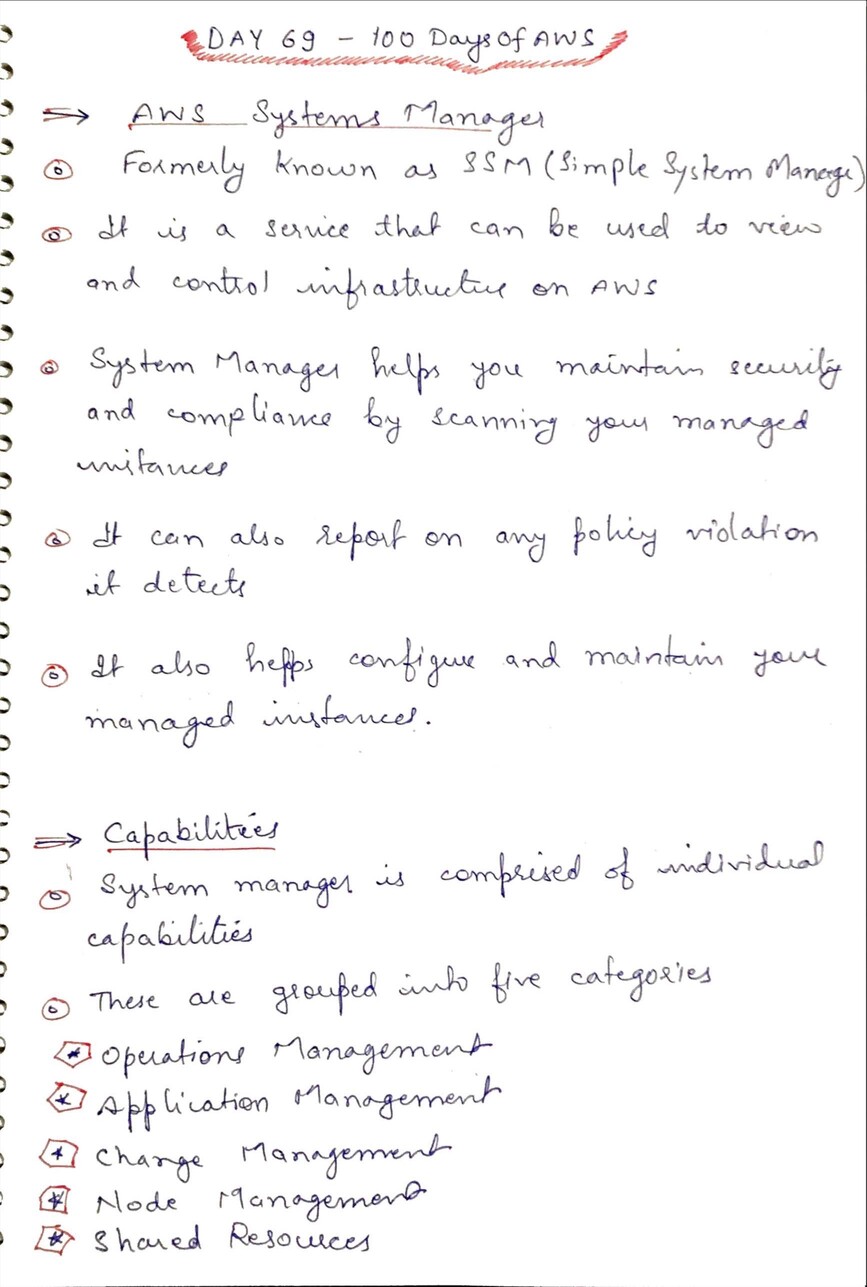 DAY 69 - 100 Days Of AWS
⇒ AWS Systems Manager
Formerly known as SSM (Simple System Manage)
It is a service that can be used to view
and control infrastructure on AWS
System Manager helps you maintain security
and compliance by scanning your managed
instances
It can also report on any policy violation
it detects
It also helps configure and maintain your
managed instances.
⇒ Capabilities
System manager is comprised of individual
capabilities
These are grouped into five categories
* Operations Management
* Application Management
* Change Management
* Node Management
* Shared Resources